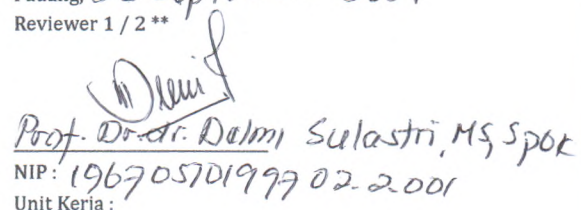 Padang,
Reviewer 1 / 2 **
Prof. Dr. dr. Delmi Sulastri, MS, SpGK
NIP : 1967 0570 1997 02. 2. 001
Unit Kerja :